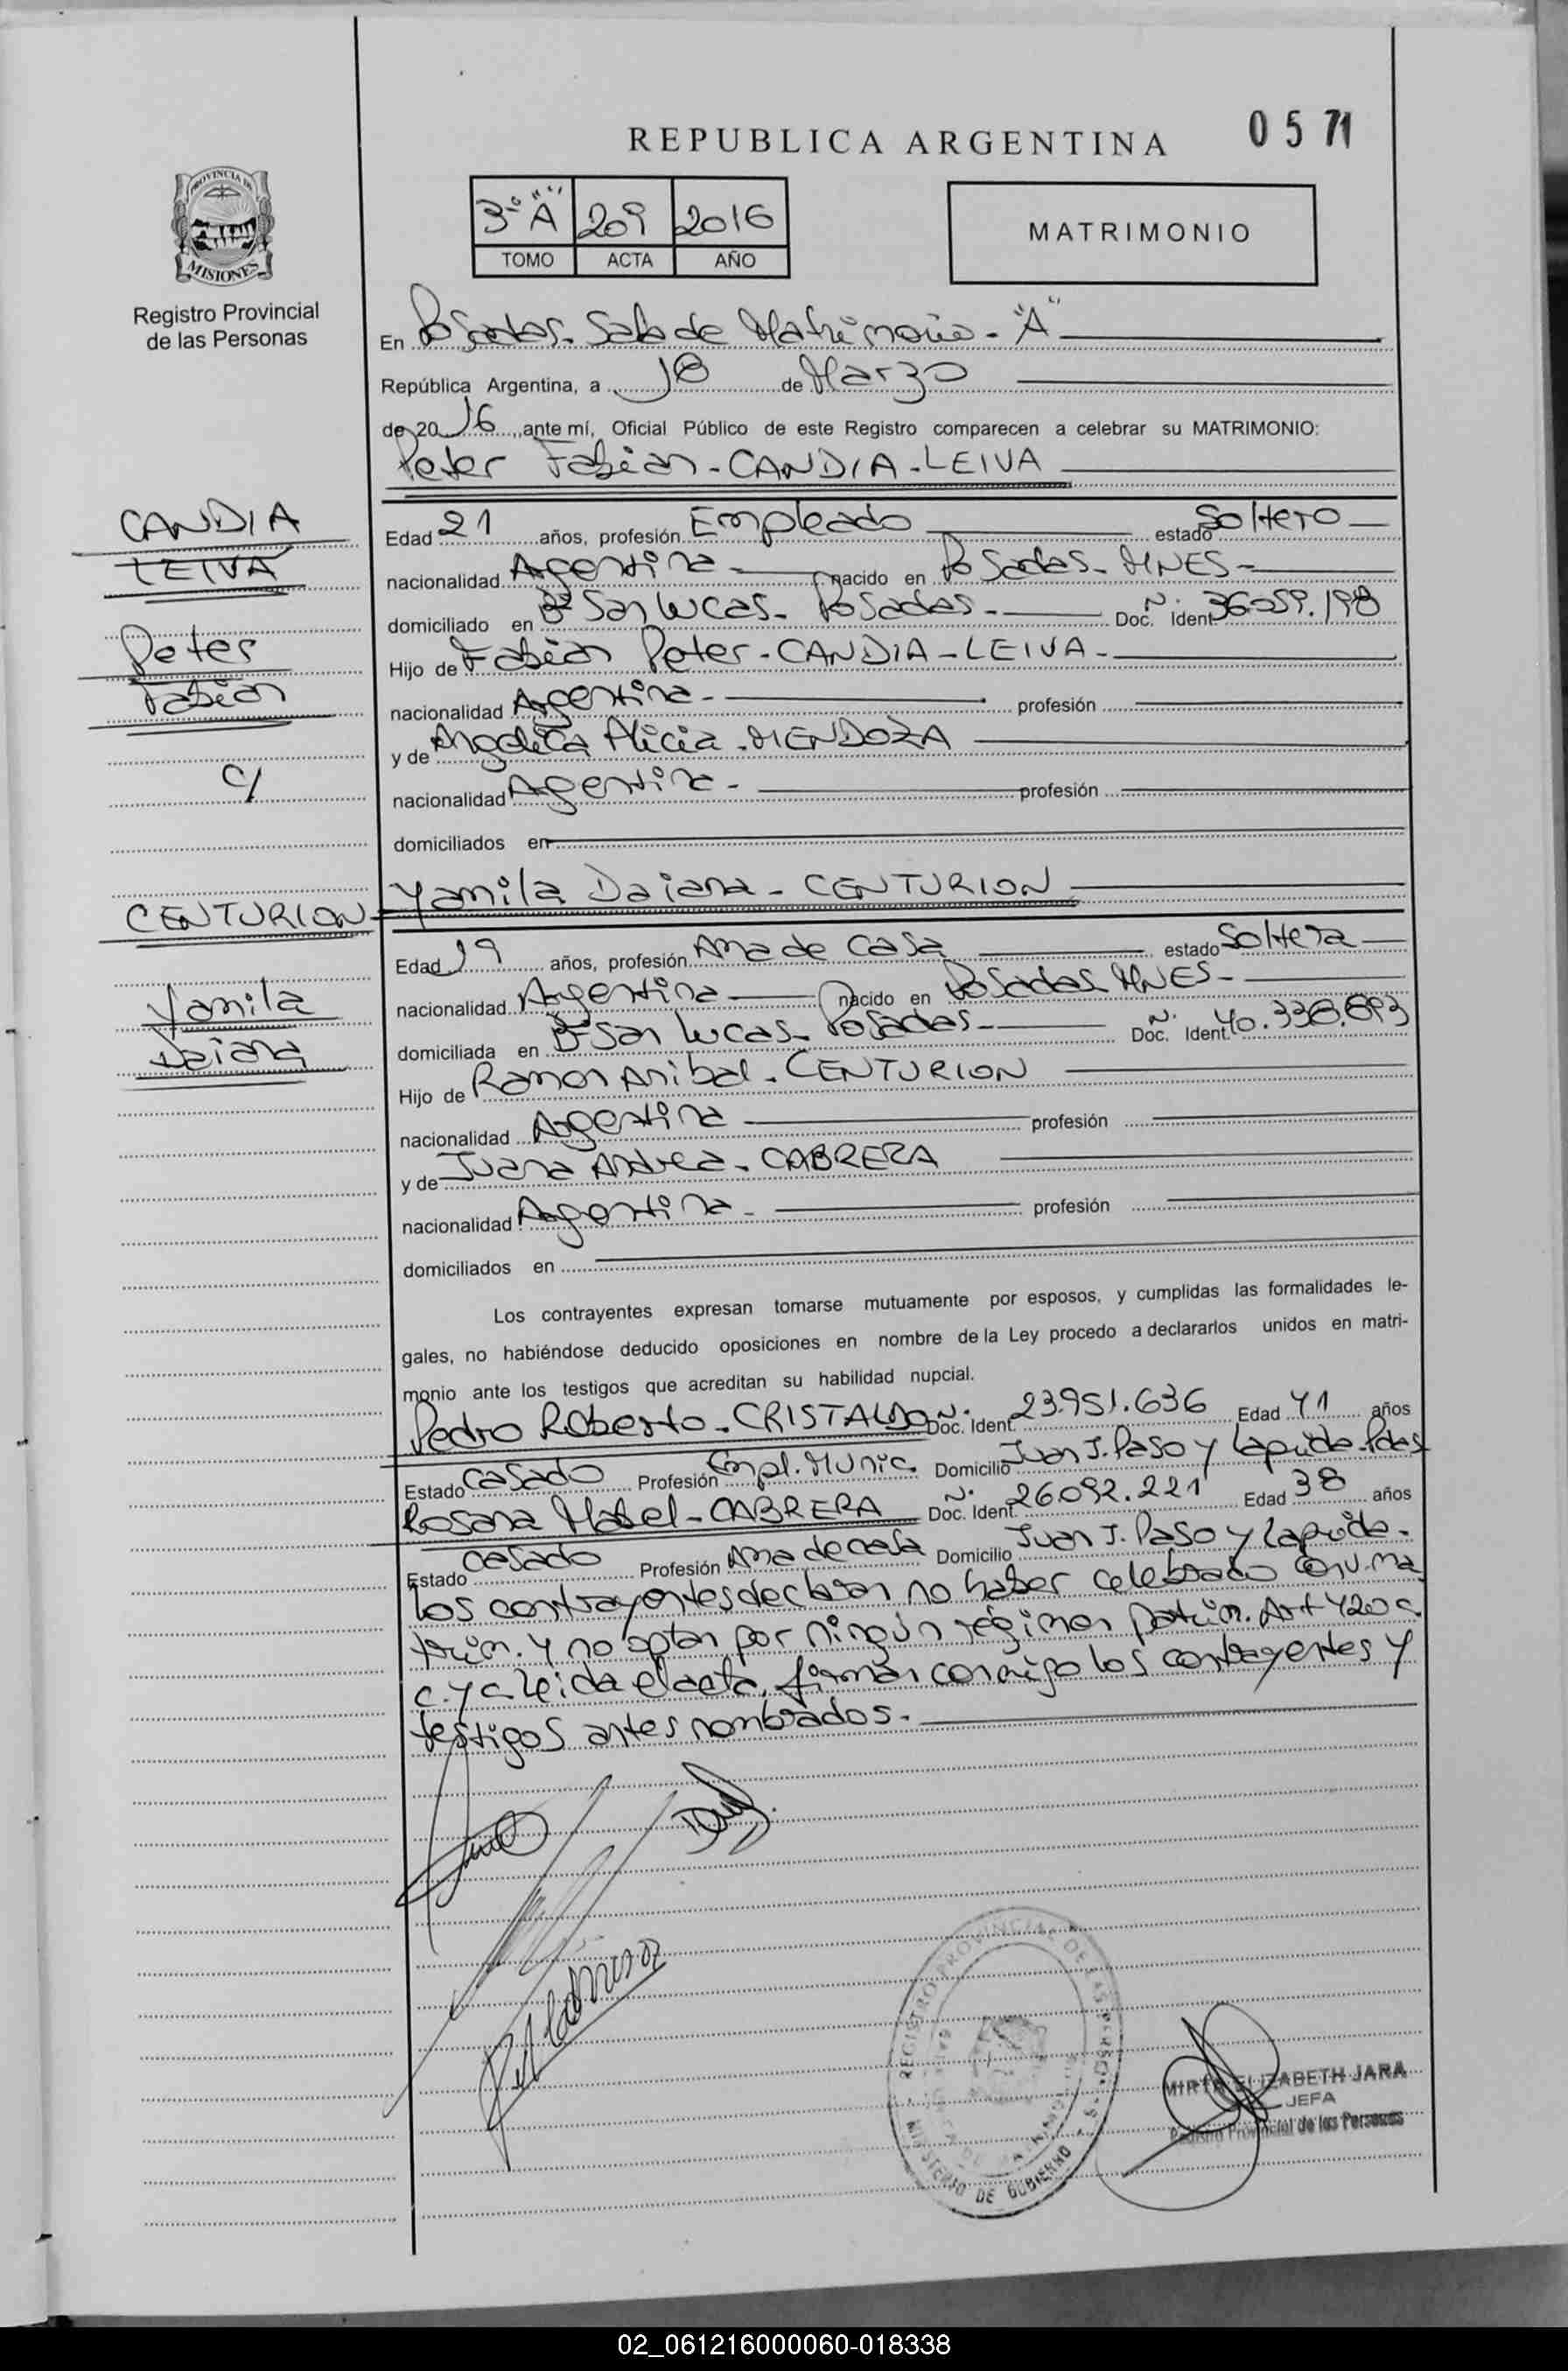 REPUBLICA ARGENTINA
0571
PROVINCIA DE
MISIONES
Registro Provincial
de las Personas
3º "A" 209 2016
TOMO ACTA AÑO
MATRIMONIO
En Posadas - Sala de Matrimonio - "A"
República Argentina, a 18 de Marzo
de 20 16, ante mí, Oficial Público de este Registro comparecen a celebrar su MATRIMONIO:
Peter Fabian - CANDIA - LEIVA
CANDIA
LEIVA
Peter
Fabian
c/
CENTURION
Yamila
Daiana
Edad 21 años, profesión Empleado estado Soltero
nacionalidad Argentina - nacido en Posadas - MNES -
domiciliado en Bº San Lucas - Posadas - Doc. Nº Ident 36.059.198
Hijo de Fabian Peter - CANDIA - LEIVA -
nacionalidad Argentina - profesión
y de Angelica Alicia - MENDOZA
nacionalidad Argentina - profesión
domiciliados en
Yamila Daiana - CENTURION
Edad 19 años, profesión Ama de Casa estado Soltera
nacionalidad Argentina nacido en Posadas MNES -
domiciliada en Bº San Lucas - Posadas - Doc. Nº Ident. 40.338.893
Hijo de Ramon Anibal - CENTURION
nacionalidad Argentina profesión
y de Juana Andrea - CABRERA
nacionalidad Argentina - profesión
domiciliados en
Los contrayentes expresan tomarse mutuamente por esposos, y cumplidas las formalidades le-
gales, no habiéndose deducido oposiciones en nombre de la Ley procedo a declararlos unidos en matri-
monio ante los testigos que acreditan su habilidad nupcial.
Pedro Roberto - CRISTALDO Doc. Nº Ident. 23.951.636 Edad 41 años
Estado Casado Profesión Empl. Munic. Domicilio Juan J. Paso y Laprida - Pdas
Rosana Mabel - CABRERA Doc. Nº Ident. 26.092.221 Edad 38 años
Estado Casado Profesión Ama de casa Domicilio Juan J. Paso y Laprida -
Los contrayentes declaran no haber celebrado conv. ma
trim. y no optan por ningún régimen patrim. Art 420 c.
C. y C. Leida el acta, firman conmigo los contrayentes y
testigos antes nombrados.
REGISTRO PROVINCIAL DE LAS PERSONAS
MINISTERIO DE GOBIERNO
MIRTA ELIZABETH JARA
JEFA
Registro Provincial de las Personas
02_061216000060-018338